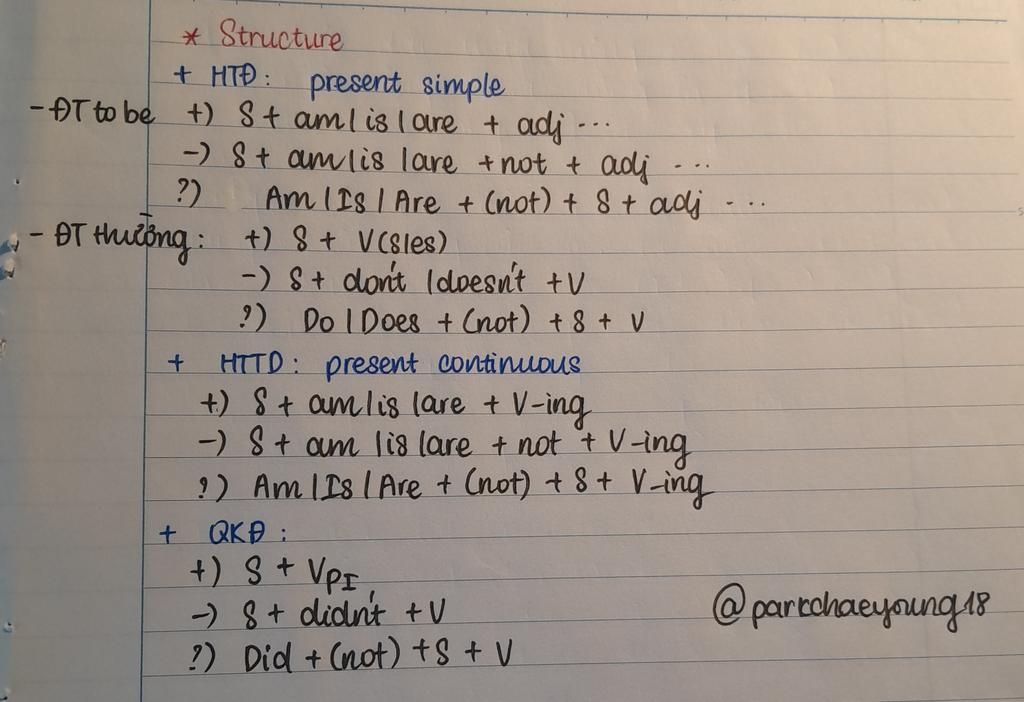 * Structure
+ HTĐ: present simple
- ĐT to be +) S + am | is | are + adj ...
-) S + am | is | are + not + adj ...
?) Am | Is | Are + (not) + S + adj ...
- ĐT thường: +) S + V(s|es)
-) S + don't | doesn't + V
?) Do | Does + (not) + S + V
+ HTTD: present continuous
+) S + am | is | are + V-ing
-) S + am | is | are + not + V-ing
?) Am | Is | Are + (not) + S + V-ing
+ QKĐ:
+) S + VpI
-) S + didn't + V
?) Did + (not) + S + V
@parkchaeyoung18